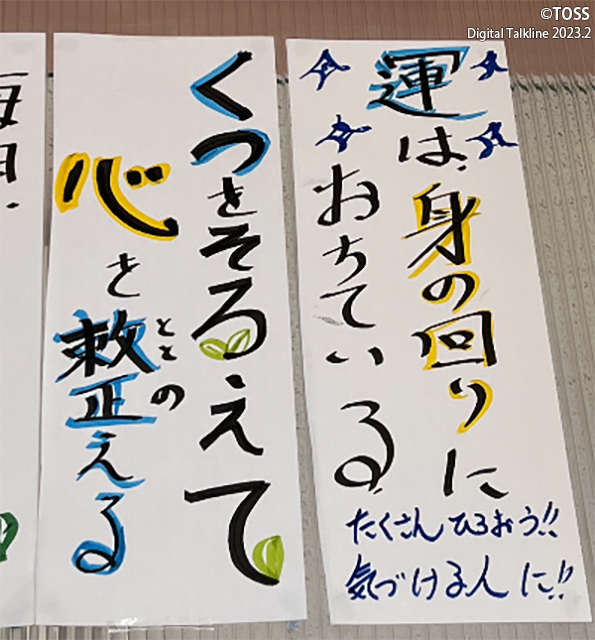 ©TOSS
Digital Talkline 2023.2
運は、身の回りに
おちている
たくさん ひろおう!!
気づける人に!!
くつをそろえて
ととの
心を整える
毎日、